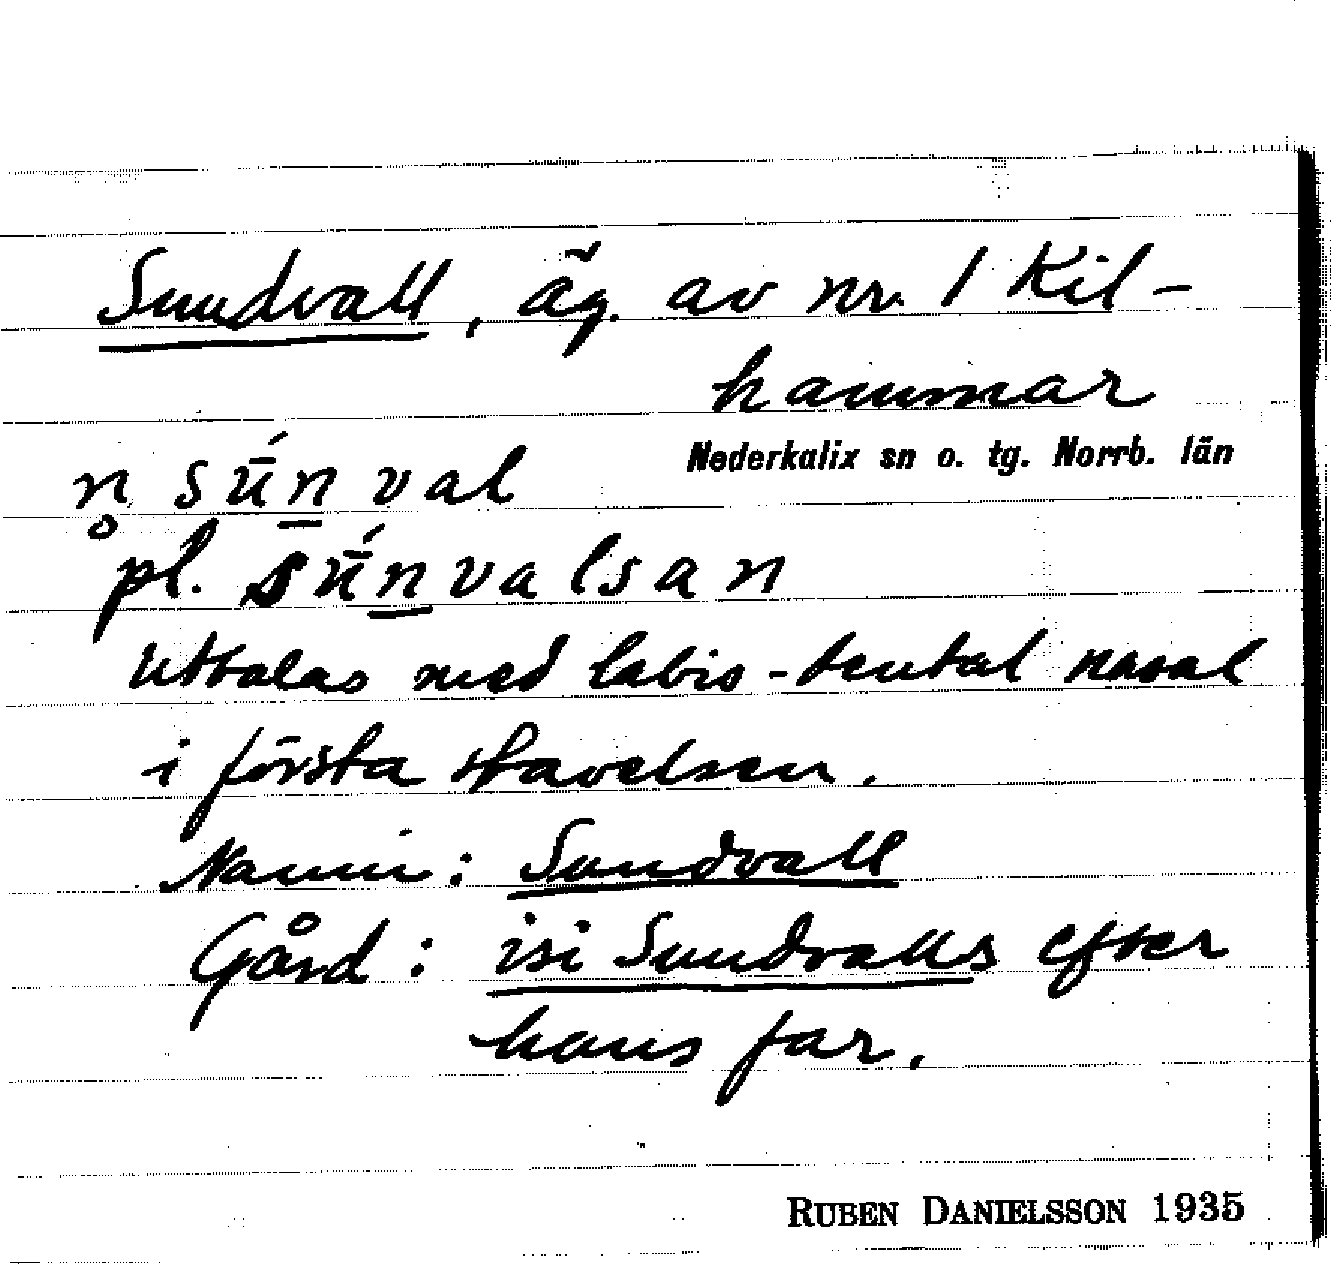 Sundvall, äg. av nr. 1 Kil-
hammar
Nederkalix sn o. tg. Norrb. län
n̥ sū́n̲val
pl. sū́n̲valsan
Uttalas med labio-dental nasal
i första stavelsen.
Namn: Sundvall
Gård: isi Sundvalls efter
hans far.
RUBEN DANIELSSON 1935